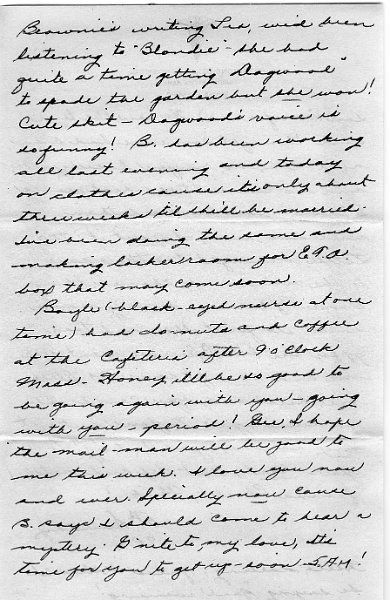 Brownie's writing Les, we'd been
listening to "Blondie" - she had
quite a time getting Dagwood
to spade the garden but she won!
Cute skit - Dagwood's voice is
so funny! B. has been working
all last evening and today
on clothes cause it's only about
three weeks til she'll be married.
I've been doing the same and
making locker room for E.T.A
box that may come soon.
Boyle (black-eyed nurse at one
time) had donuts and coffee
at the Cafeteria after 9 o'clock
Mass - Honey, it'll be so good to
be going again with you - going
with you - period! Gee, I hope
the mail-man will be good to
me this week. I love you now
and ever. Specially now cause
B. says I should come to hear a
mystery. G'nite to, my love, It's
time for you to get up soon - 5 A.M!